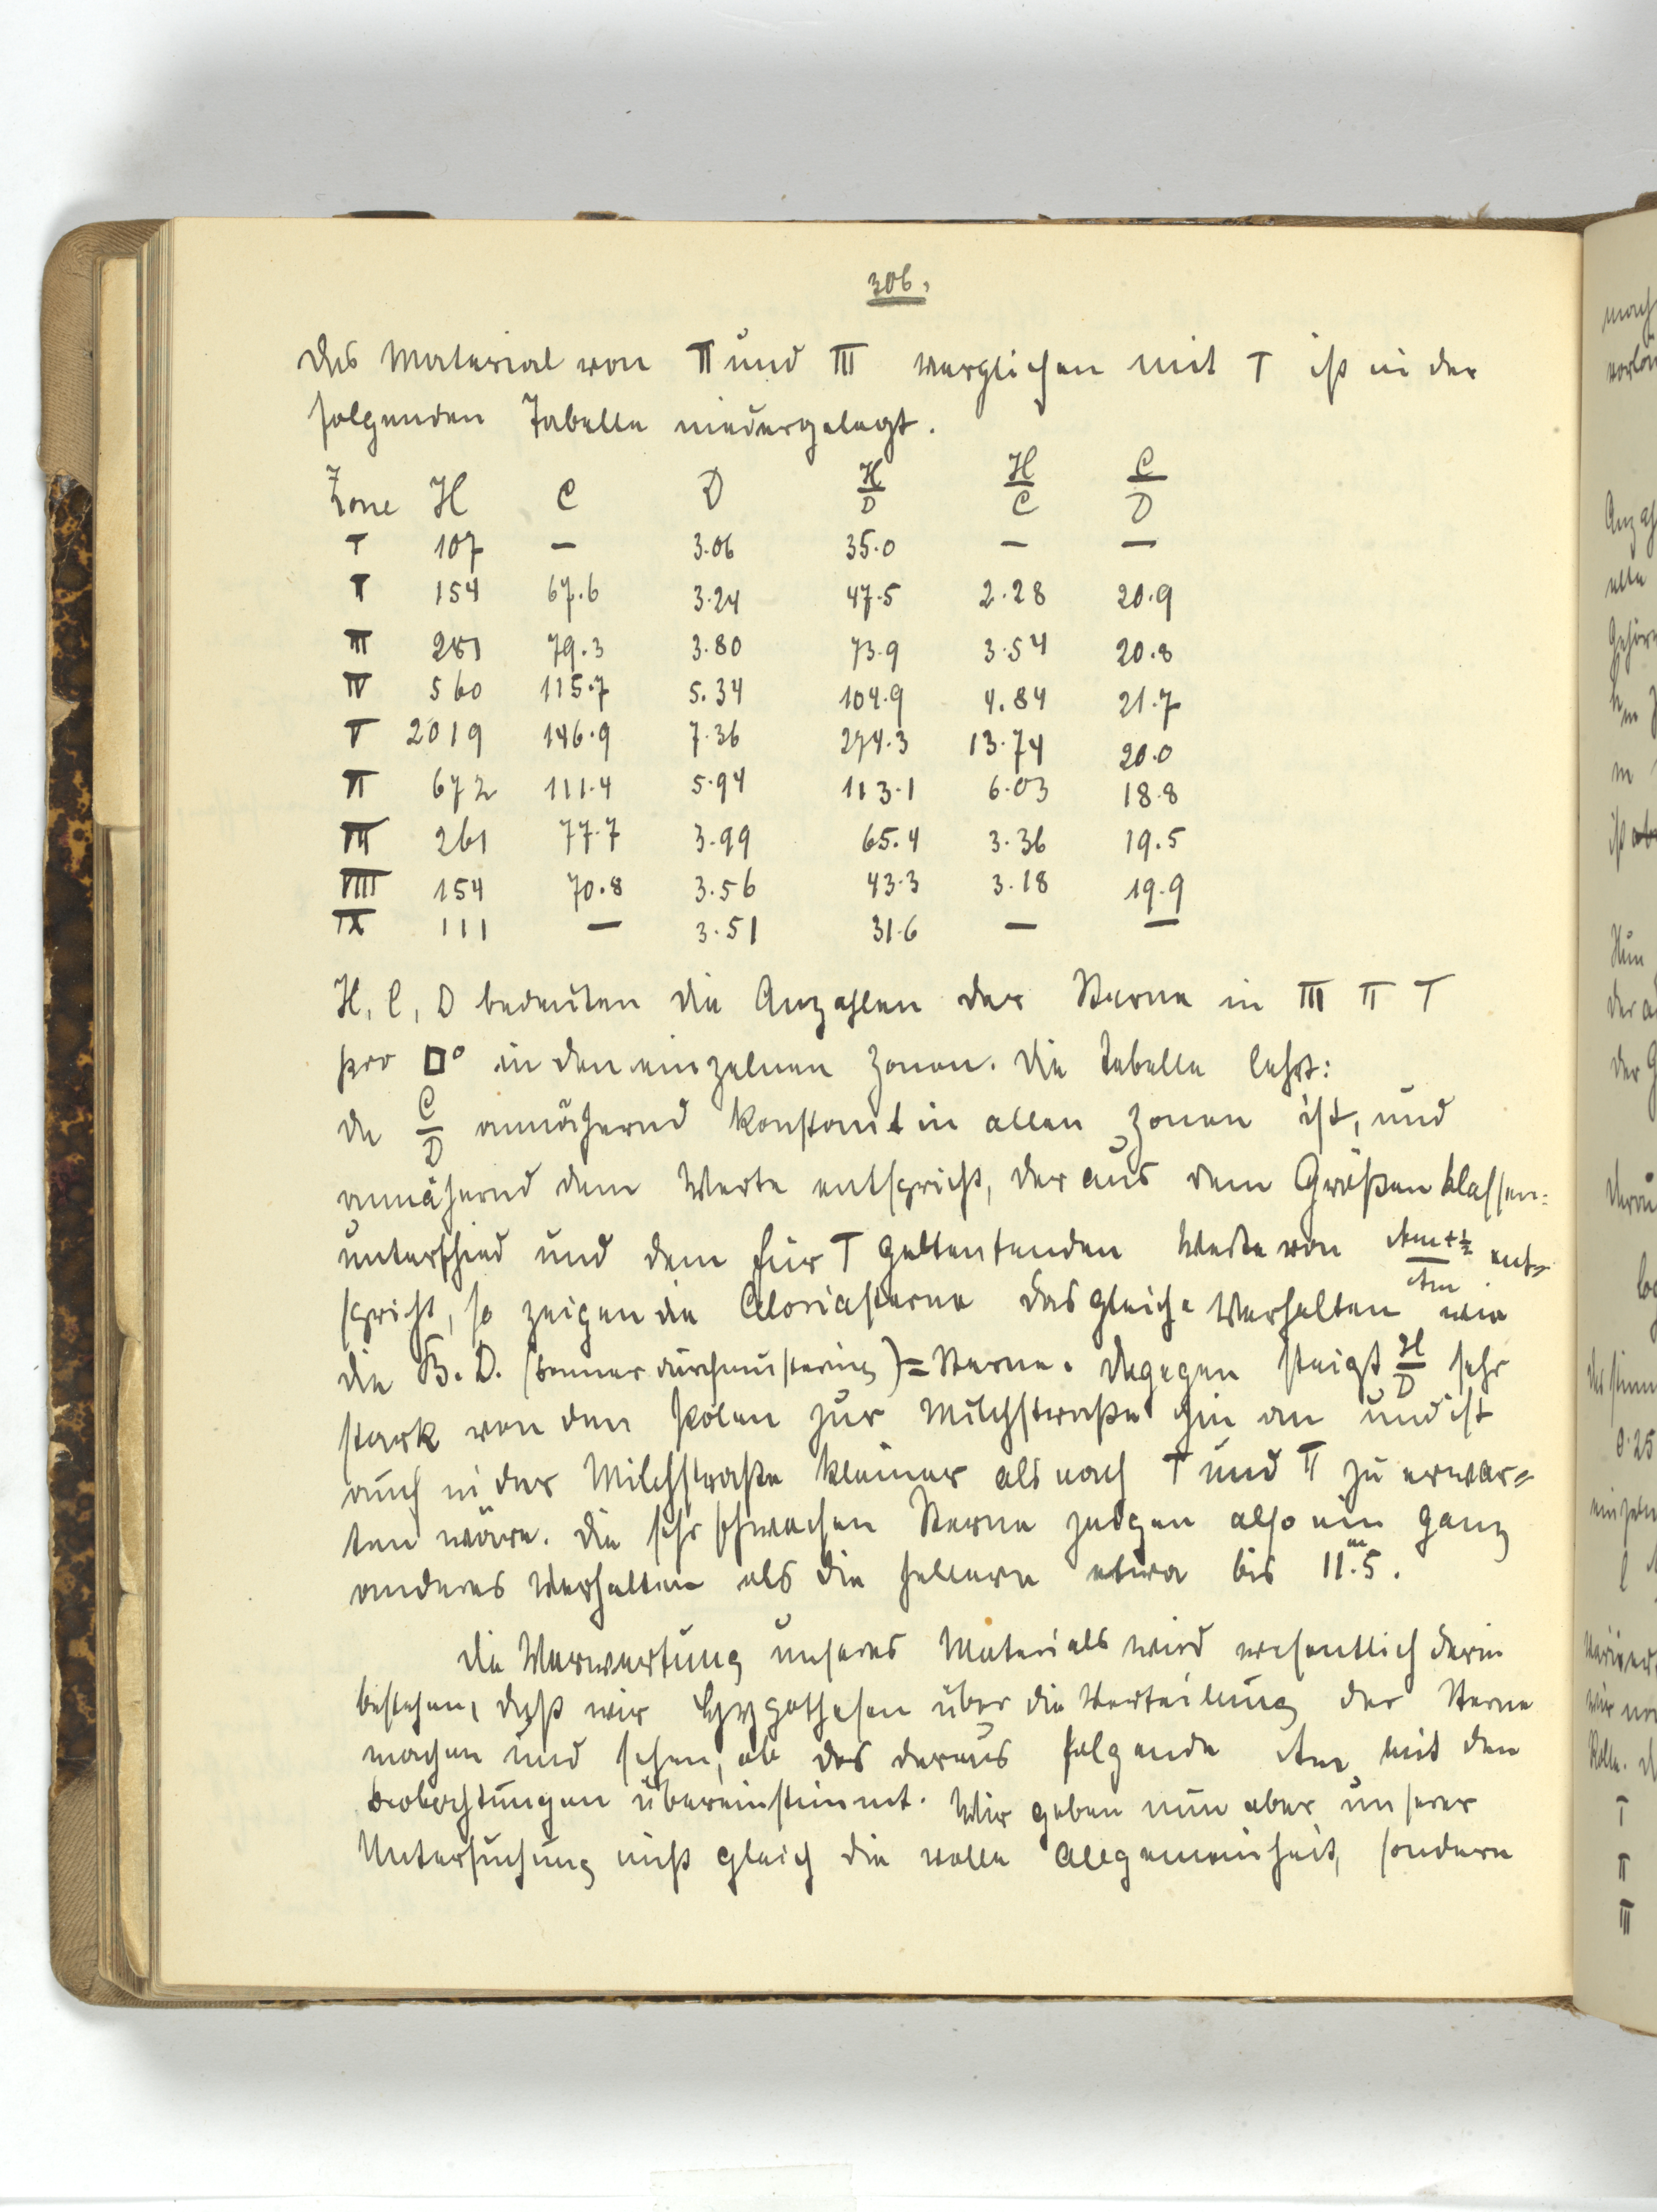 306.
Das Material von II und III verglichen mit I ist in der
folgenden Tabelle niedergelegt.
Zone H C D H/D H/C C/D
I 107 — 3.06 35.0 — —
II 154 67.6 3.24 47.5 2.28 20.9
III 281 79.3 3.80 73.9 3.54 20.8
IV 560 115.7 5.34 104.9 4.84 21.7
V 2019 146.9 7.36 274.3 13.74 20.0
VI 672 111.4 5.94 113.1 6.03 18.8
VII 261 77.7 3.99 65.4 3.36 19.5
VIII 154 70.8 3.56 43.3 3.18 19.9
IX 111 — 3.51 31.6 — —
H, C, D bedeuten die Anzahlen der Sterne in III II I
pro □° in den einzelnen Zonen. Die Tabelle lehrt:
da C/D annähernd konstant in allen Zonen ist, und
annähernd dem Werte entspricht, der aus dem Größenklassen=
unterschied und dem für I geltenden Werte von Am+½/Am ent=
spricht, so zeigen die Sterne das gleiche Verhalten wie
die B. D. (Bonner Durchmusterung)=Sterne. Dagegen steigt H/D sehr
stark von den Polen zur Milchstraße hin an und ist
auch in der Milchstraße kleiner als nach I und II zu erwar=
ten wäre. Die sehr schwachen Sterne zeigen also ein ganz
anderes Verhalten als die hellern etwa bis 11.m5.
Die Verwertung unseres Materials wird wesentlich darin
bestehen, daß wir Hypothesen über die Verteilung der Sterne
machen und sehen, ob das daraus folgende Am mit den
Beobachtungen übereinstimmt. Wir geben nun aber unserer
Untersuchung nicht gleich die volle Allgemeinheit, sondern